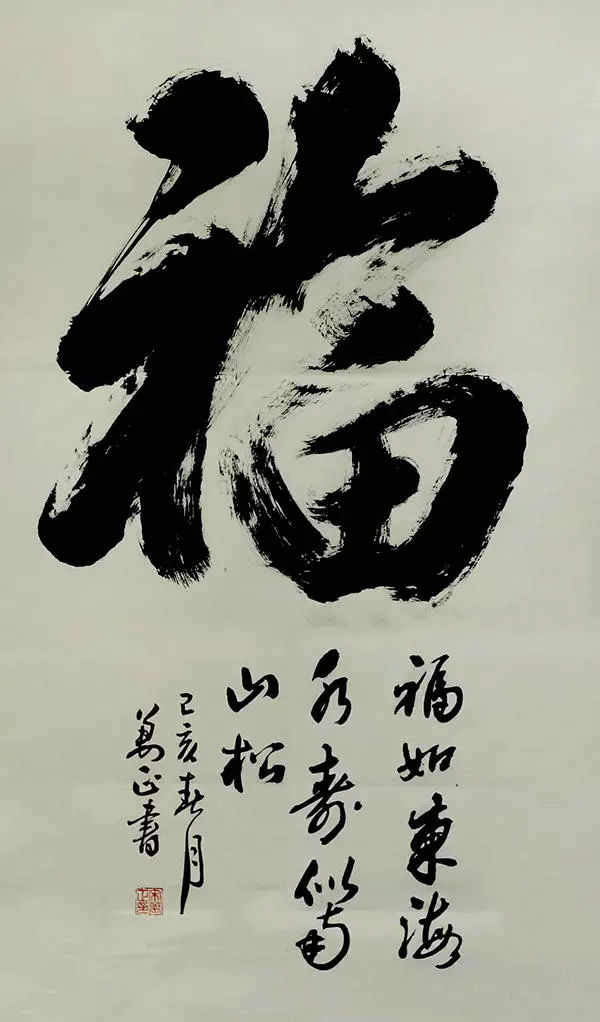 福
福如東海
水壽似南
山松
己亥春月
萬正書